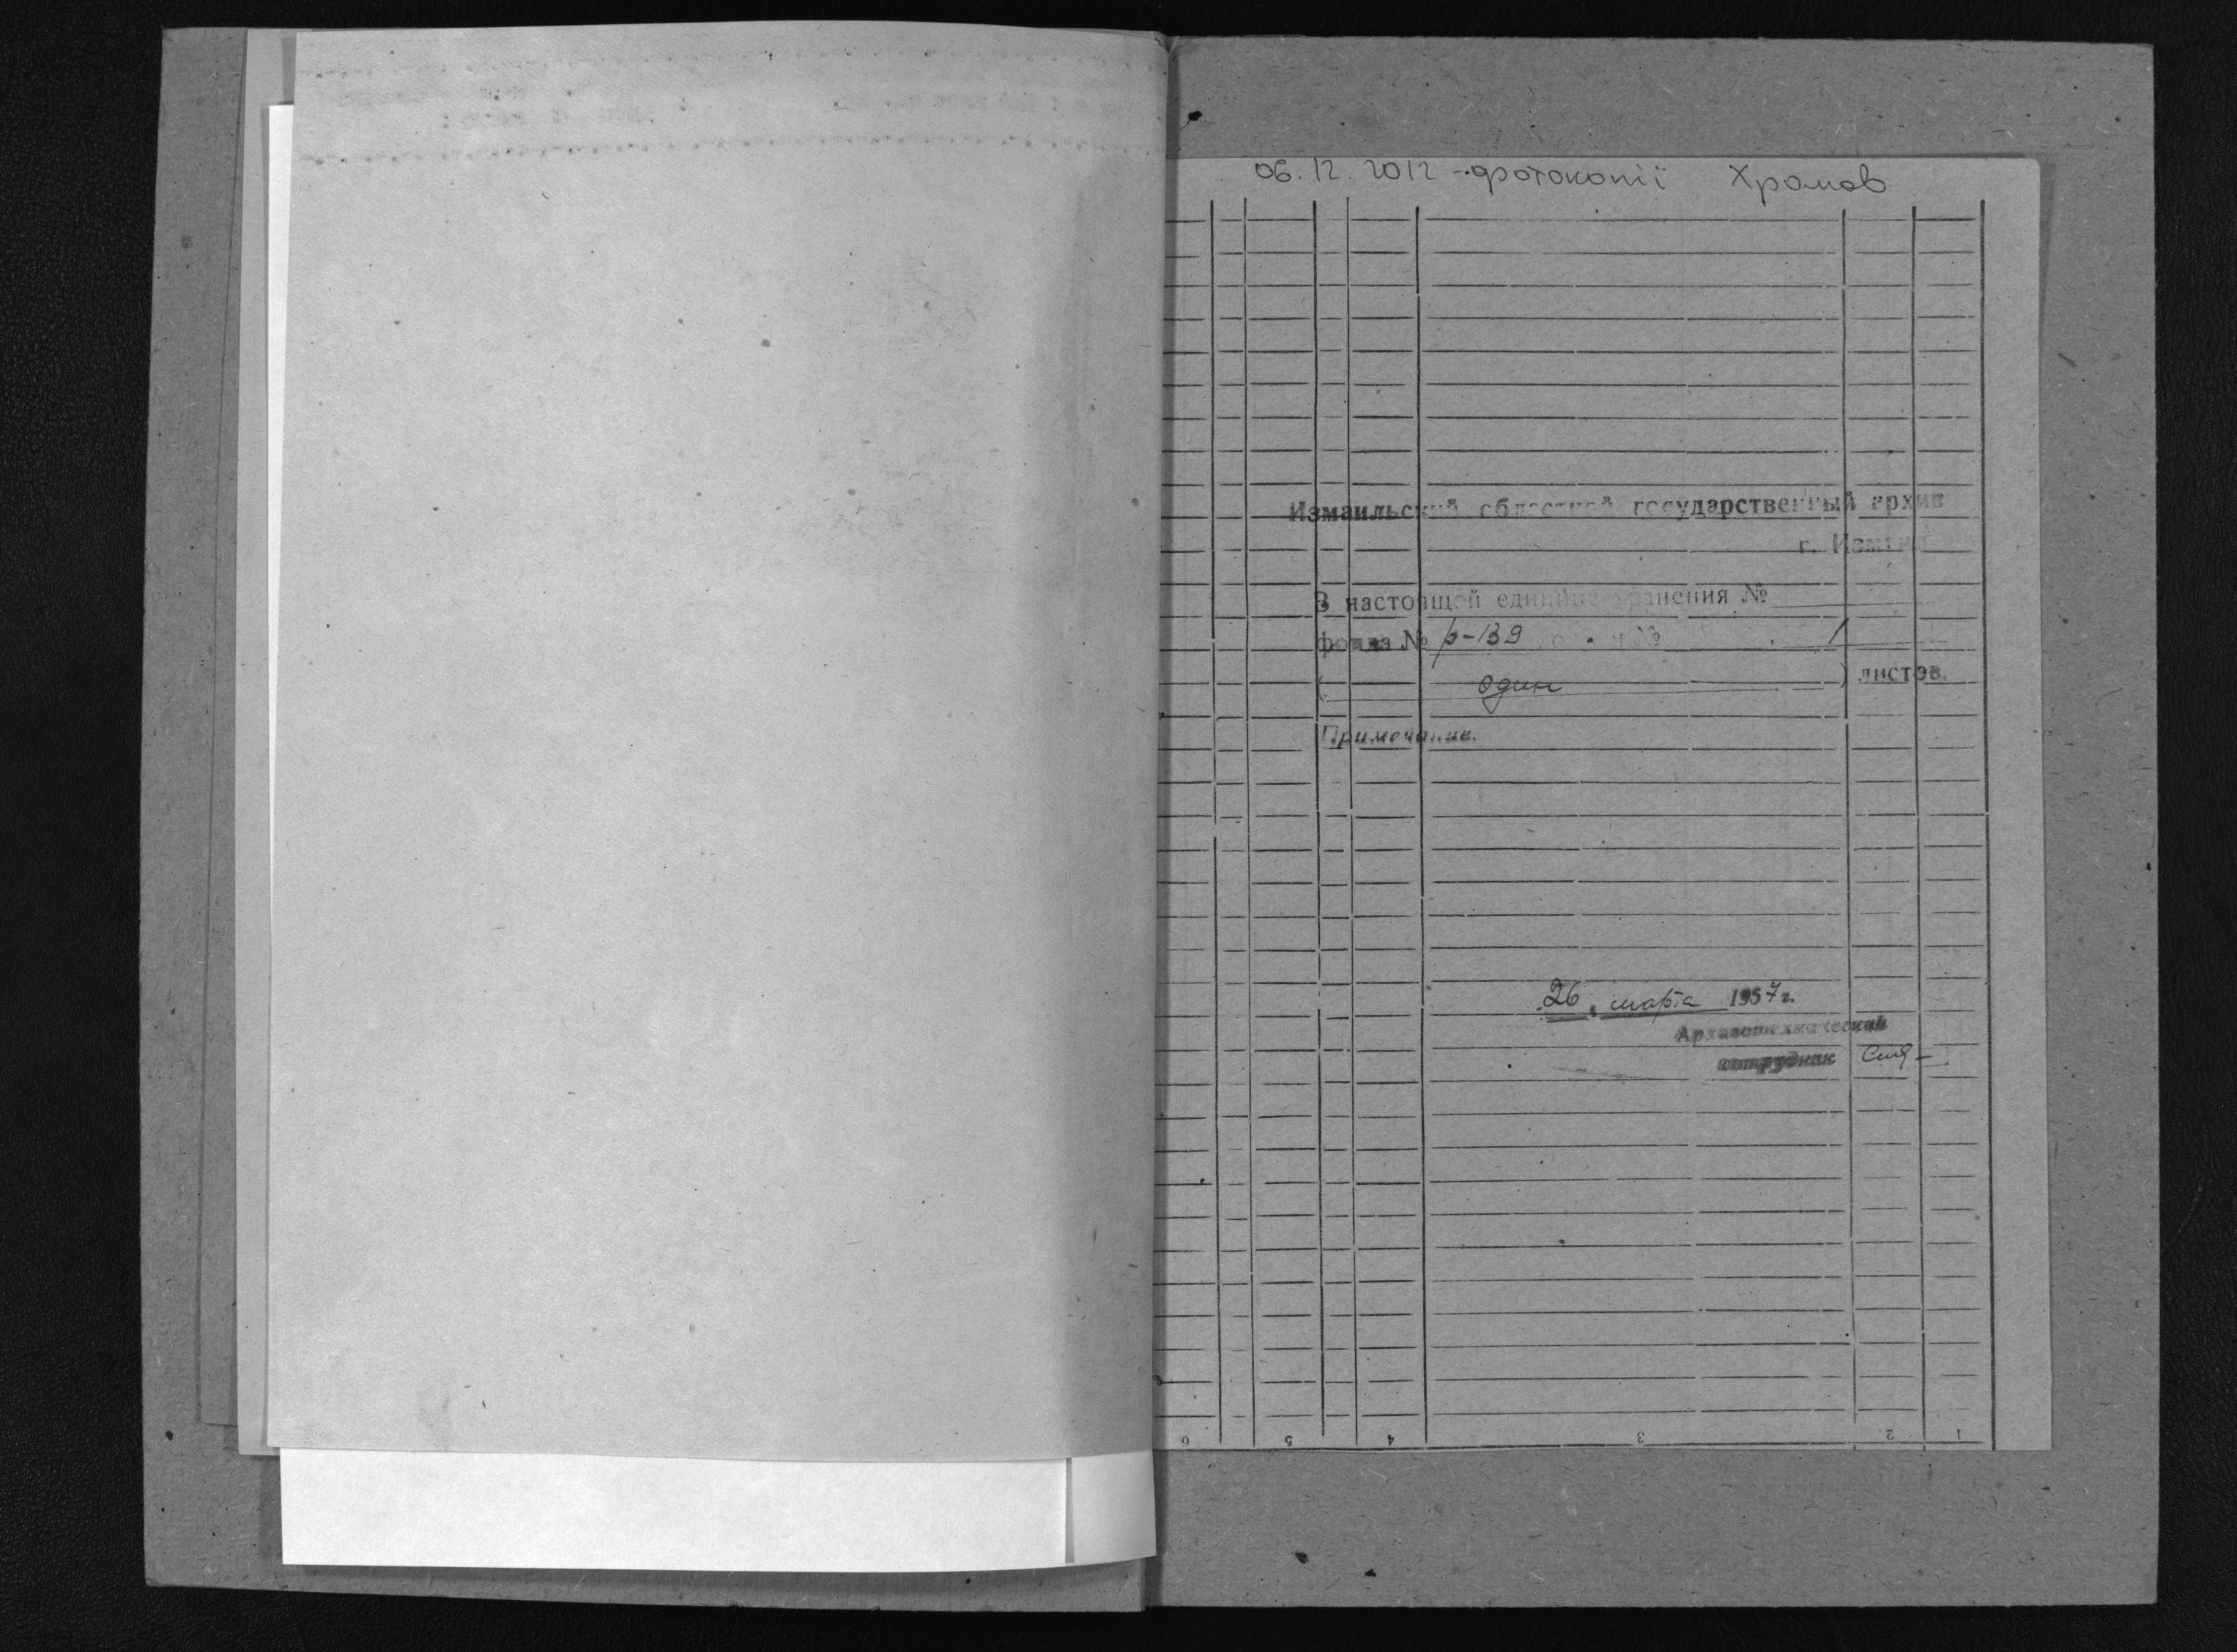 06.12.2012 - фотокопії Храмов
Измаильский областной государственный архив
г. Измаил
В настоящей единице хранения №
фонда № р-139 1
( один ) листов.
Примечание.
26 марта 1957 г.
Архивотехнический
сотрудник
6 5 4 3 2 1